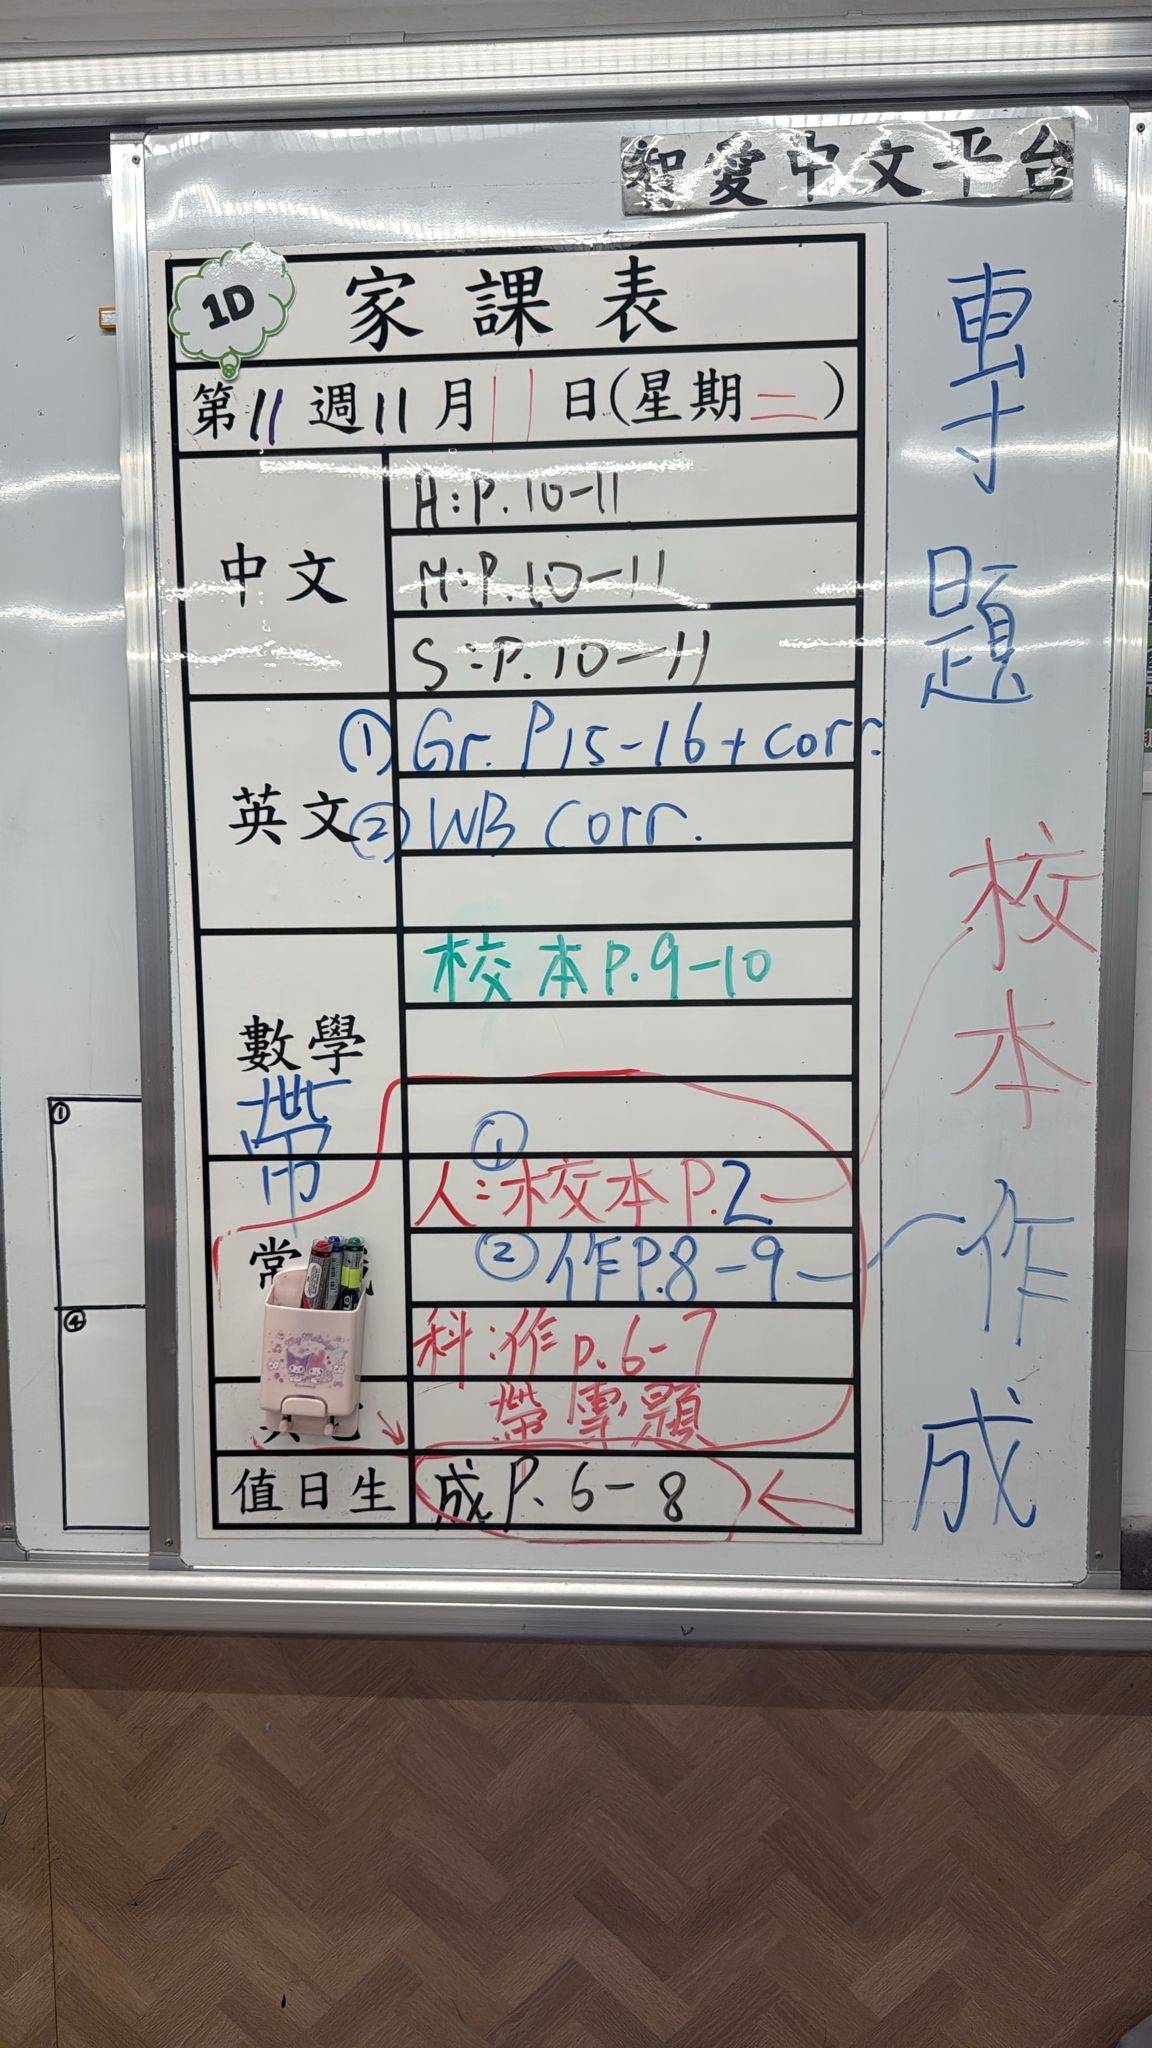 愛中文平台
1D
家課表
第11週11月11日(星期二)
中文
H:P.10-11
M:P.10-11
S:P.10-11
英文
① Gr. P15-16+corr.
② WB corr.
數學
校本P.9-10
帶
常
①
人:校本P.2
② 作P.8-9
科:作p.6-7
帶專題
值日生
成P.6-8
專題
校本
作
成
①
④